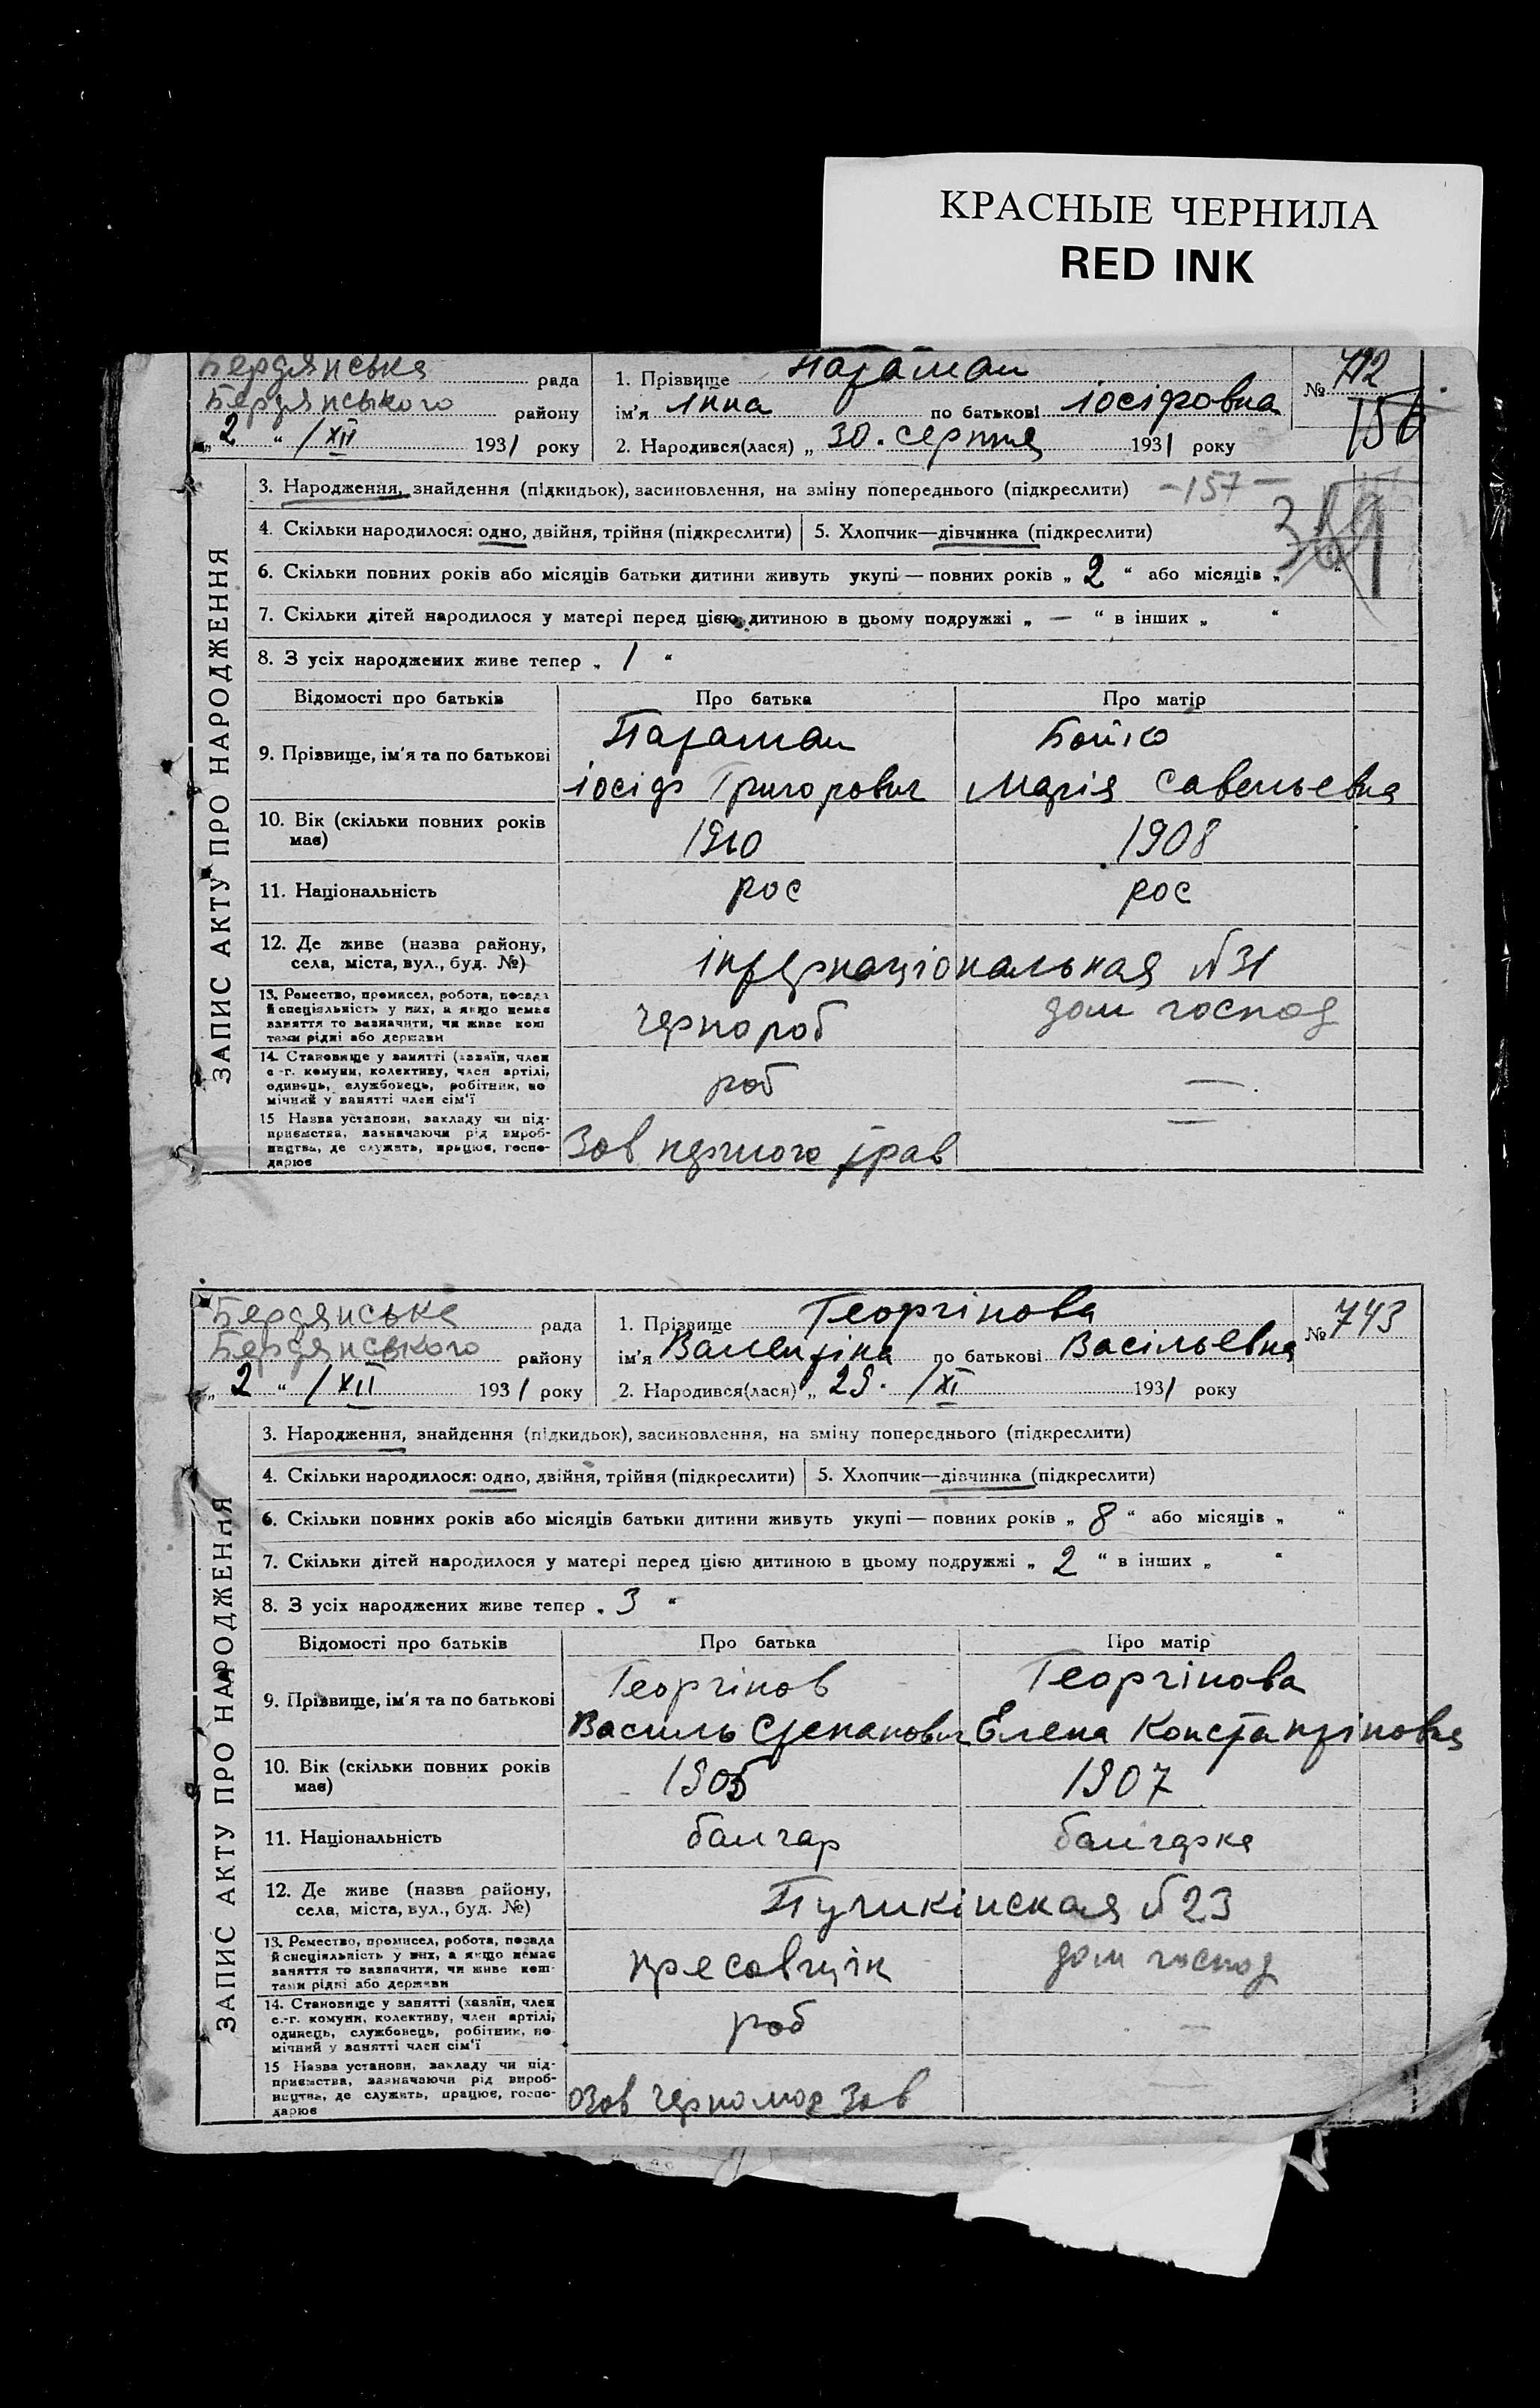 КРАСНЫЕ ЧЕРНИЛА
RED INK
Бердянська рада
Бердянського району
„2“ /XII 1931 року
1. Прізвище Параман
ім'я Інна по батькові Іосіфовна
2. Народився(лася) „30. серпня 1931 року
№ 742
156
ЗАПИС АКТУ ПРО НАРОДЖЕННЯ
3. Народження, знайдення (підкидьок), засиновлення, на зміну попереднього (підкреслити) –157–
4. Скільки народилося: одно, двійня, трійня (підкреслити) 5. Хлопчик—дівчинка (підкреслити)
6. Скільки повних років або місяців батьки дитини живуть укупі — повних років „2“ або місяців „ “
7. Скільки дітей народилося у матері перед цією дитиною в цьому подружжі „—“ в інших „ “
8. З усіх народжених живе тепер „1“
Відомості про батьків Про батька Про матір
9. Прізвище, ім'я та по батькові
Параман Бойко
Іосіф Григорович Марія Савельевна
10. Вік (скільки повних років має) 1910 1908
11. Національність рос рос
12. Де живе (назва району, села, міста, вул., буд. №)
інтернаціональная №31
13. Ремество, промисел, робота, посада й спеціяльність у них, а якщо немає заняття то зазначити, чи живе коштами рідні або держави
чернороб дом господ
14. Становище у занятті (хазяїн, член с.-г. комуни, колективу, член артілі, одинець, службовець, робітник, помічний у занятті член сім'ї
роб —
15 Назва установи, закладу чи підприємства, зазначаючи рід виробництва, де служить, працює, господарює
Зав першого трав —
Бердянська рада
Бердянського району
„2“ /XII 1931 року
1. Прізвище Георгінова
ім'я Валентіна по батькові Васільевна
2. Народився(лася) „29. /XI 1931 року
№ 743
ЗАПИС АКТУ ПРО НАРОДЖЕННЯ
3. Народження, знайдення (підкидьок), засиновлення, на зміну попереднього (підкреслити)
4. Скільки народилося: одно, двійня, трійня (підкреслити) 5. Хлопчик—дівчинка (підкреслити)
6. Скільки повних років або місяців батьки дитини живуть укупі — повних років „8“ або місяців „ “
7. Скільки дітей народилося у матері перед цією дитиною в цьому подружжі „2“ в інших „ “
8. З усіх народжених живе тепер „3“
Відомості про батьків Про батька Про матір
9. Прізвище, ім'я та по батькові
Георгінов Георгінова
Василь Степанович Елена Константіновна
10. Вік (скільки повних років має) 1905 1907
11. Національність балгар балгарка
12. Де живе (назва району, села, міста, вул., буд. №)
Пушкінская №23
13. Ремество, промисел, робота, посада й спеціяльність у них, а якщо немає заняття то зазначити, чи живе коштами рідні або держави
пресовщік дом господ
14. Становище у занятті (хазяїн, член с.-г. комуни, колективу, член артілі, одинець, службовець, робітник, помічний у занятті член сім'ї
роб —
15 Назва установи, закладу чи підприємства, зазначаючи рід виробництва, де служить, працює, господарює
Озов Черномор Зав —